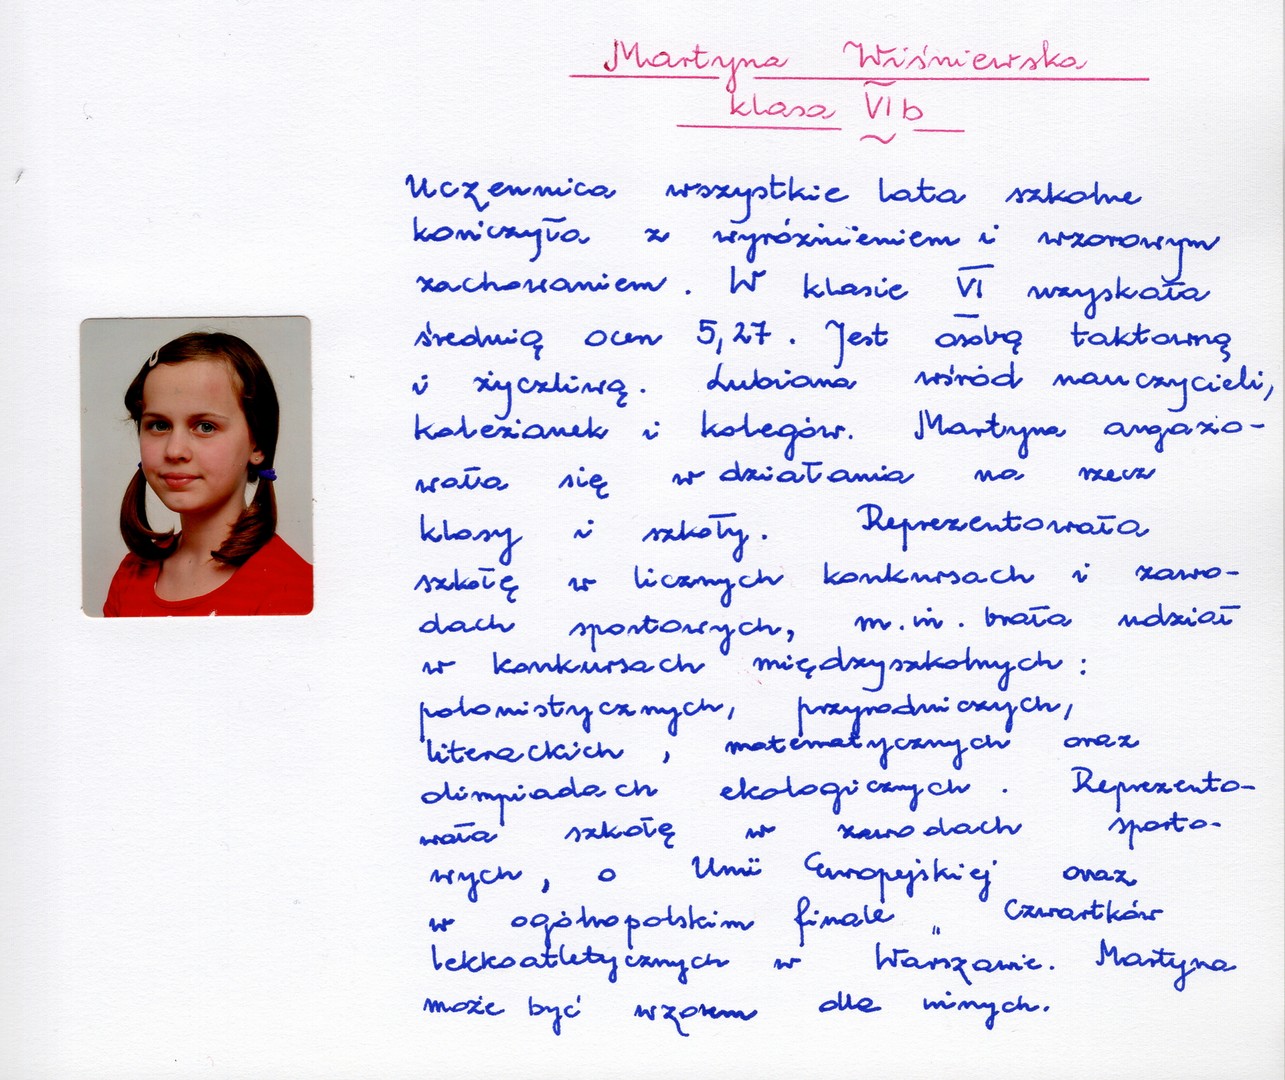 Martyna Wiśniewska
klasa VI b
Uczennica wszystkie lata szkolne
kończyła z wyróżnieniem i wzorowym
zachowaniem. W klasie VI uzyskała
średnią ocen 5,27. Jest osobą taktowną
i życzliwą. Lubiana wśród nauczycieli,
koleżanek i kolegów. Martyna angażo-
wała się w działania na rzecz
klasy i szkoły. Reprezentowała
szkołę w licznych konkursach i zawo-
dach sportowych, m.in. brała udział
w konkursach międzyszkolnych:
polonistycznych, przyrodniczych,
literackich, matematycznych oraz
olimpiadach ekologicznych. Reprezento-
wała szkołę w zawodach sporto-
wych, o Unii Europejskiej oraz
w ogólnopolskim finale „Czwartków
lekkoatletycznych w Warszawie. Martyna
może być wzorem dla innych.